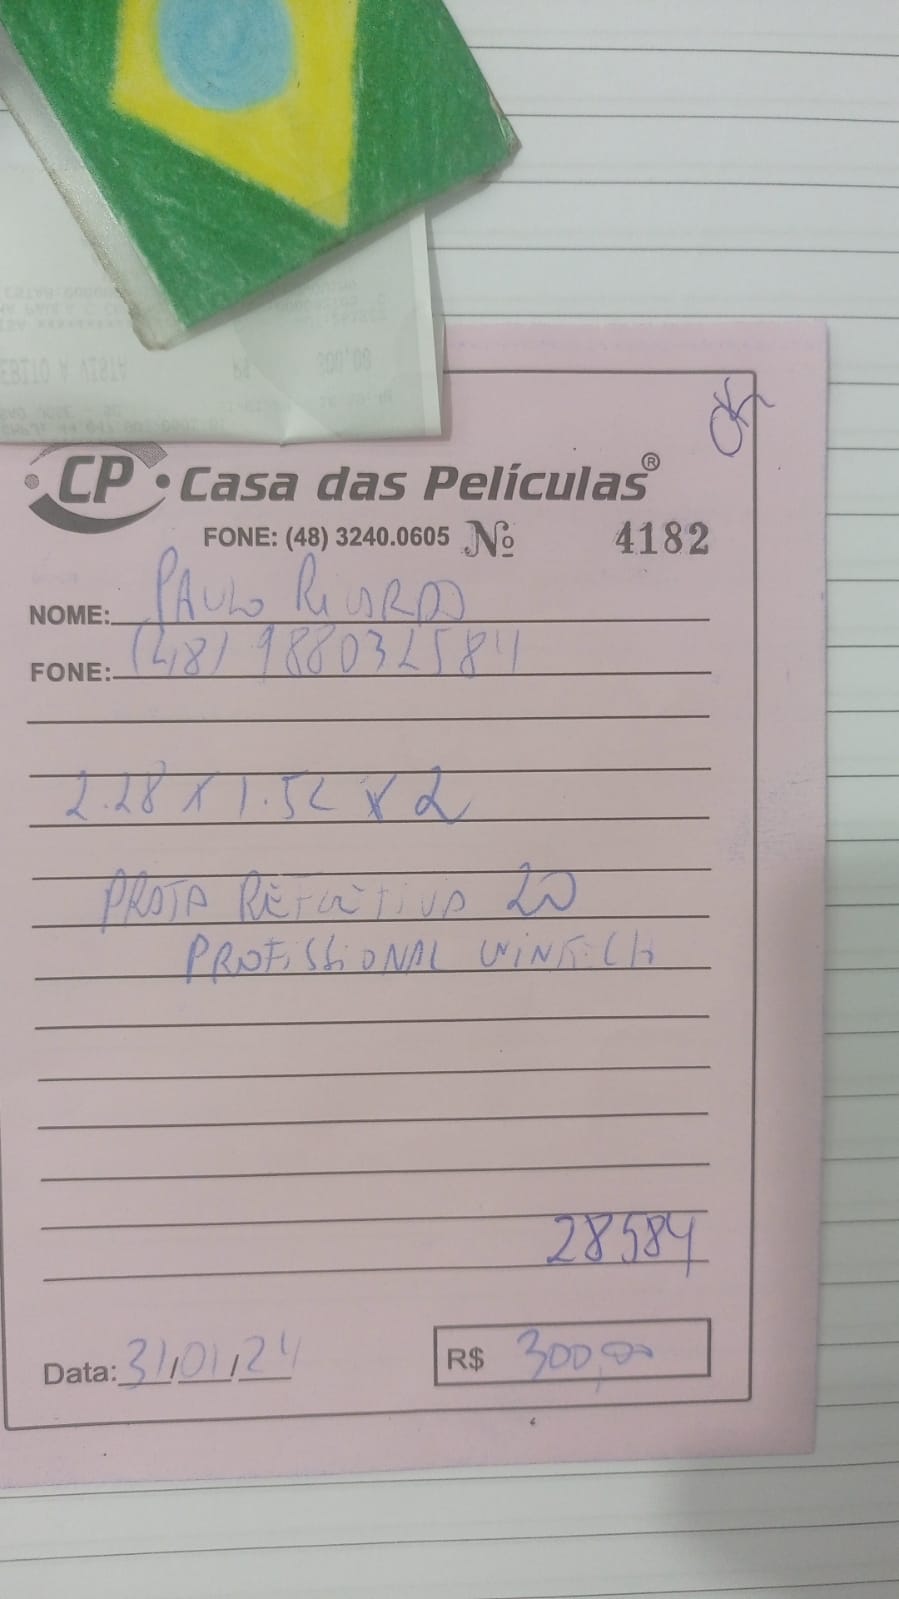 DEBITO A VISTA R$ 300,00
OK
CP Casa das Películas®
FONE: (48) 3240.0605 Nº 4182
NOME: PAULO RICARDO
FONE: (48) 988032584
2.28 x 1.52 x 2
PRATA REFLETIVA 20
PROFISSIONAL WINTECH
28584
Data: 31/01/24 R$ 300,00